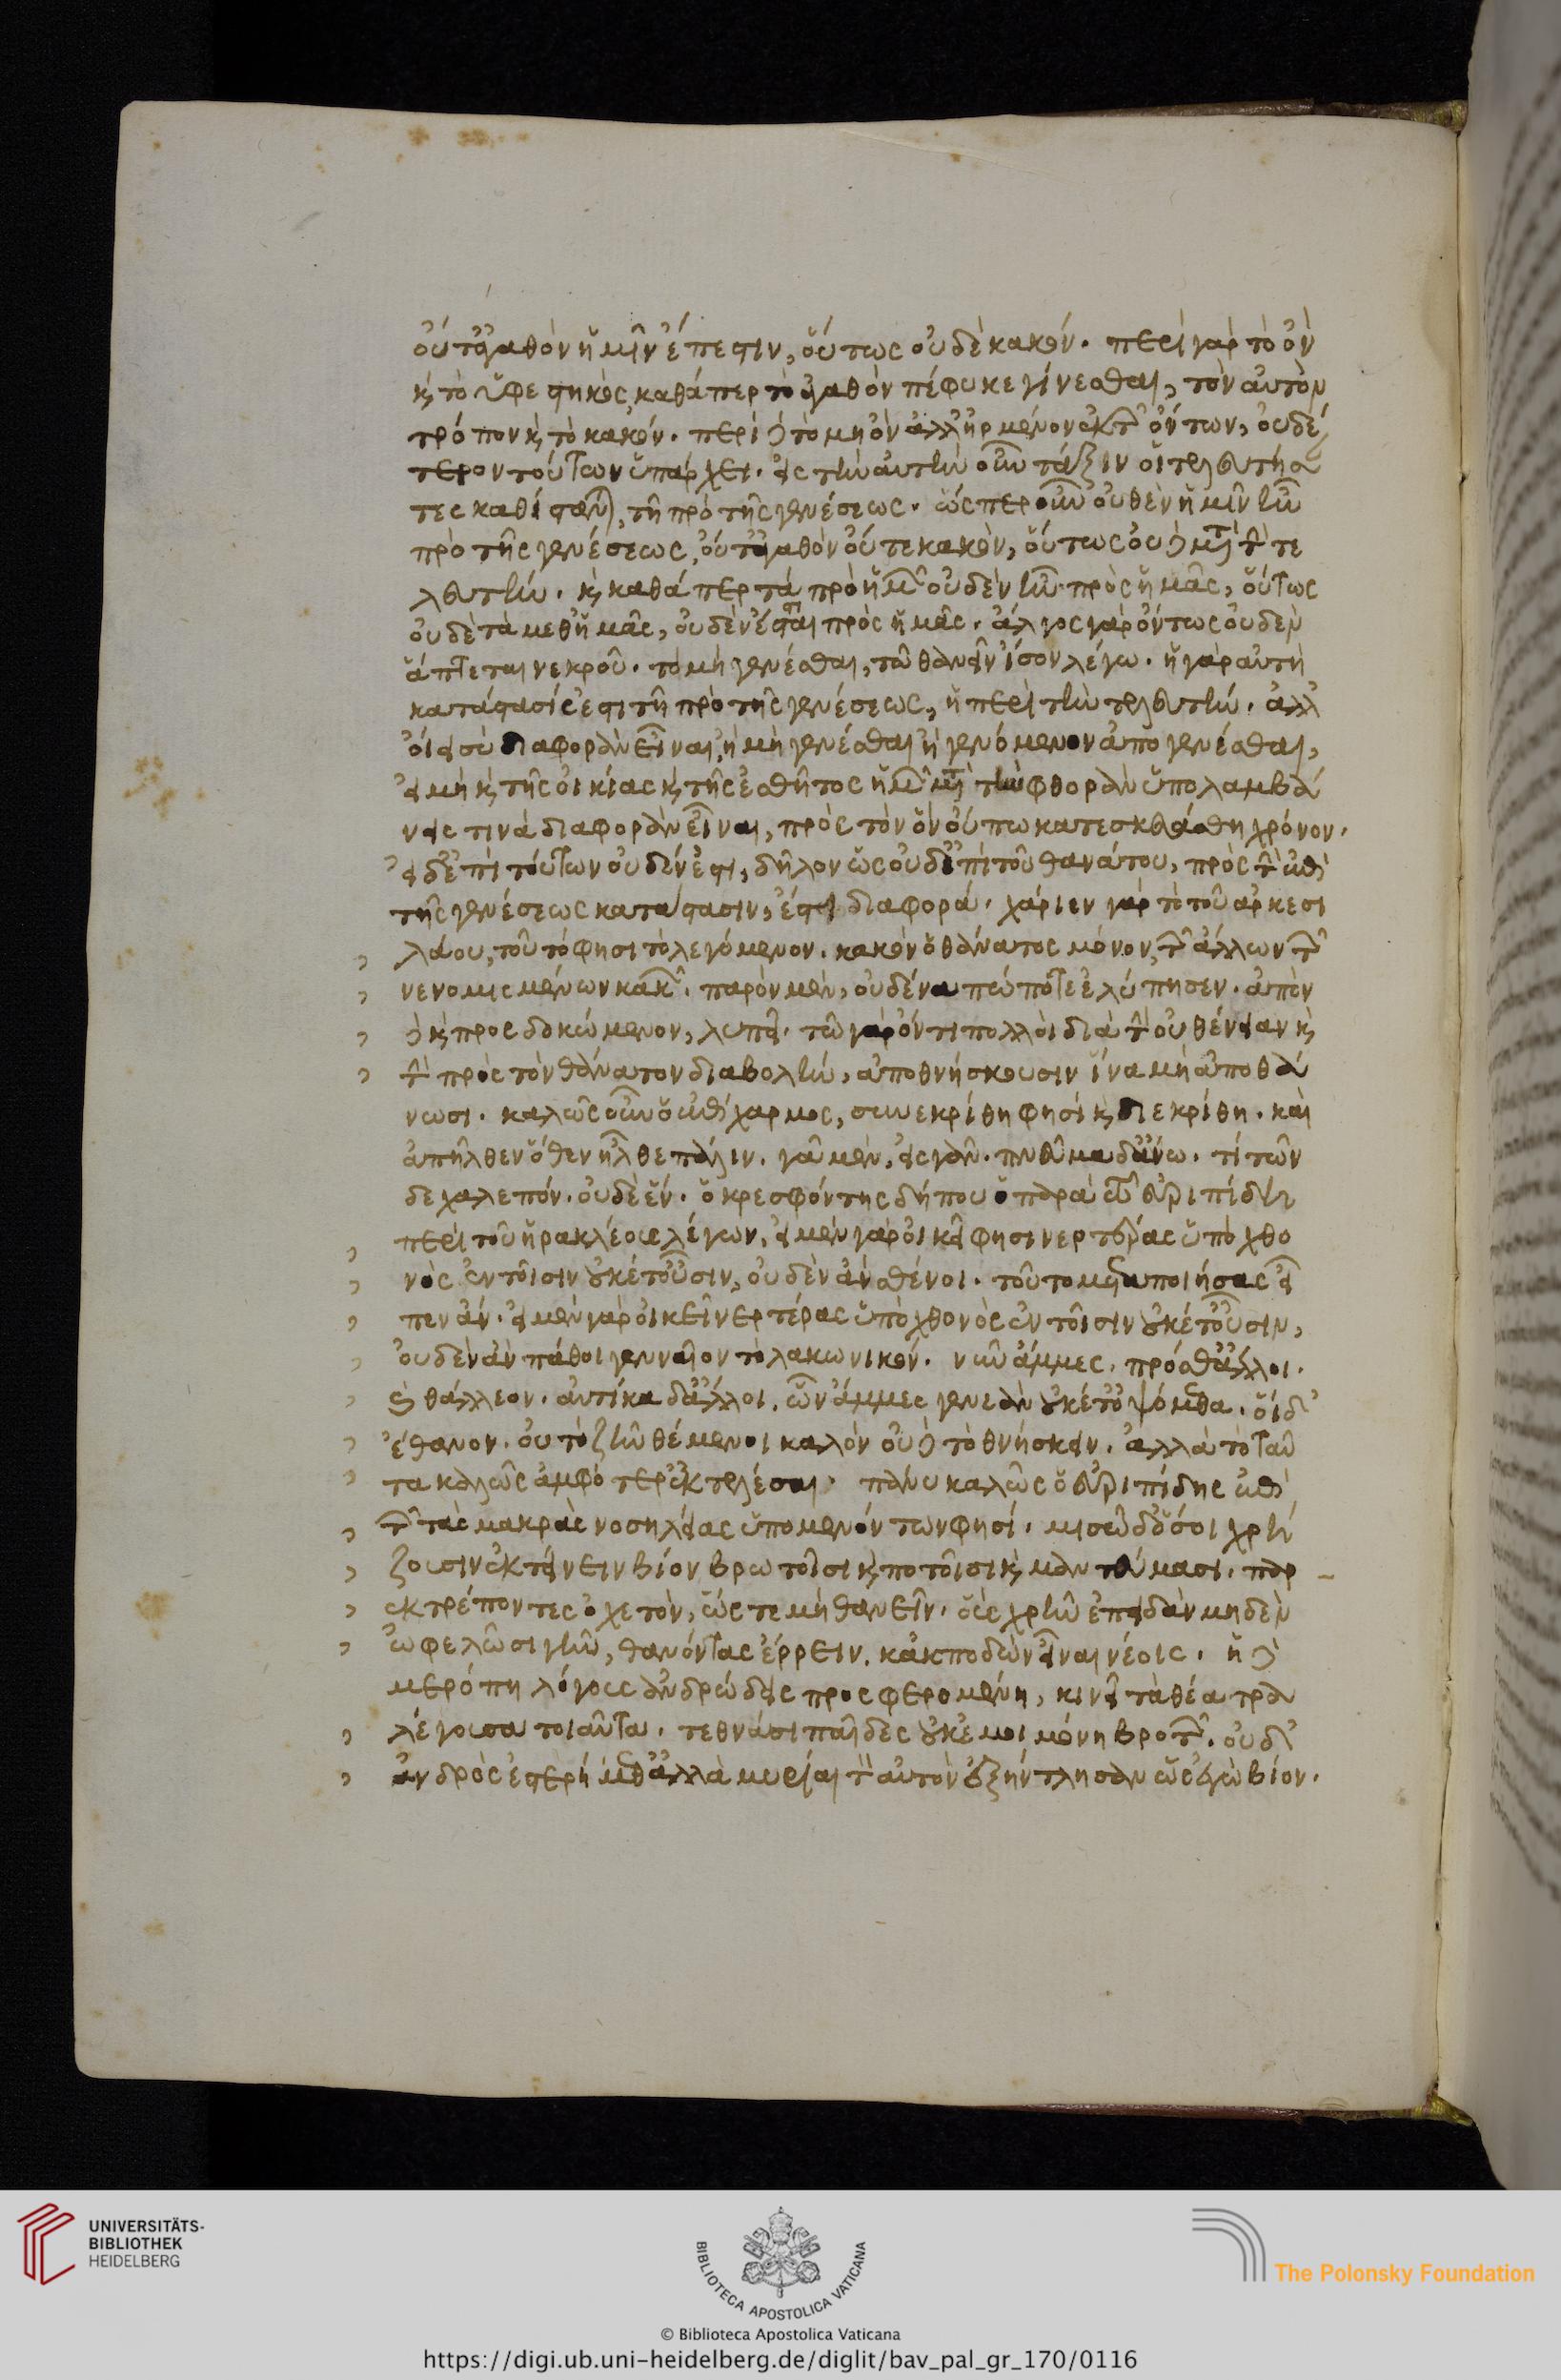 οὔτ' ἀγαθὸν ἡμῖν ἔπεστιν, οὕτως οὐδὲ κακόν. περὶ γὰρ τὸ ὂν
κ, τὸ ὑφεστηκὸς, καθάπερ τὸ ἀγαθὸν πέφυκε γίνεσθαι, τὸν αὐτὸν
τρόπον κ, τὸ κακόν. περὶ δὲ τὸ μὴ ὂν ἀλλ' ἠρμένον ἐκ τῶν ὄντων, οὐδέ
τερον τούτων ὑπάρχει. εἰς τὴν αὐτὴν οὖν τάξιν οἱ τελευτήσαν
τες καθίστανται, τῇ πρὸ τῆς γενέσεως. ὥσπερ οὖν οὐθὲν ἡμῖν ἦν
πρὸ τῆς γενέσεως, οὔτ' ἀγαθὸν οὔτε κακὸν, οὕτως οὐδὲ μετὰ τὴν τε
λευτήν. κ, καθάπερ τὰ πρὸ ἡμῶν οὐδὲν ἦν πρὸς ἡμᾶς, οὕτως
οὐδὲ τὰ μεθ' ἡμᾶς, οὐδὲν ἔσται πρὸς ἡμᾶς. ἄλγος γὰρ ὄντως οὐδὲν
ἅπτεται νεκροῦ. τὸ μὴ γενέσθαι, τῷ θανεῖν ἴσον λέγω. ἡ γὰρ αὐτὴ
κατάστασίς ἐστι τῇ πρὸ τῆς γενέσεως, ἡ περὶ τὴν τελευτήν. ἀλλ'
οἴει σὺ διαφορὰν εἶναι, ἢ μὴ γενέσθαι ἢ γενόμενον ἀπογενέσθαι,
εἰ μὴ κ, τῆς οἰκίας κ, τῆς ἐσθῆτος ἡμῶν μετὰ τὴν φθορὰν ὑπολαμβά
νεις τινὰ διαφορὰν εἶναι, πρὸς τὸν ὃν οὔπω κατεσκευάσθη χρόνον.
εἰ δ' ἐπὶ τούτων οὐδέν ἐστι, δῆλον ὡς οὐδ' ἐπὶ τοῦ θανάτου, πρὸς τὴν ἐπὶ
τῆς γενέσεως κατάστασιν, ἔστι διαφορά. χάριεν γὰρ τὸ τοῦ ἀρκεσι
λάου, τοῦτό φησι τὸ λεγόμενον. κακὸν ὁ θάνατος μόνον, τῶν ἄλλων τῶν
νενομισμένων κακῶν. παρὸν μὲν, οὐδένα πώποτε ἐλύπησεν. ἀπὸν
δὲ κ, προσδοκώμενον, λυπεῖ. τῷ γὰρ ὄντι πολλοὶ διὰ τὴν οὐθένειαν κ,
τὴν πρὸς τὸν θάνατον διαβολὴν, ἀποθνήσκουσιν ἵνα μὴ ἀποθά
νωσι. καλῶς οὖν ὁ ἐπίχαρμος, συνεκρίθη φησὶ κ, διεκρίθη. καὶ
ἀπῆλθεν ὅθεν ἦλθε πάλιν. γᾶ μὲν, εἰς γᾶν. πνεῦμα δ' ἄνω. τί τῶν
δε χαλεπόν. οὐδὲ ἕν. ὁ κρεσφόντης δήπου ὁ παρὰ τῷ εὐριπίδῃ
περὶ τοῦ ἡρακλέους λέγων, εἰ μὲν γὰρ οἰκεῖ φησι νερτέρας ὑπὸ χθο
νὸς ἐν τοῖσιν οὐκέτ' οὖσιν, οὐδὲν ἂν σθένοι. τοῦτο μεταποιήσας εἴ
πεν ἄν. εἰ μὲν γὰρ οἰκεῖ νερτέρας ὑπὸ χθονὸς ἐν τοῖσιν οὐκέτ' οὖσιν,
οὐδὲν ἂν πάθοι γενναῖον τὸ λακωνικόν. νῦν ἄμμες, πρόσθ' ἄλλοι.
ἐθάλλεον. αὐτίκα δ' ἄλλοι, ὧν ἄμμες γενεὰν οὐκέτ' ὀψόμεθα. οἵδ'
ἔθανον. οὐ τὸ ζῆν θέμενοι καλὸν οὐδὲ τὸ θνήσκειν. ἀλλὰ τὸ ταῦ
τα καλῶς ἀμφότερ' ἐκτελέσαι. πάνυ καλῶς ὁ εὐριπίδης ἐπὶ
τῶν τὰς μακρὰς νοσηλείας ὑπομενόντων φησί. μισῶ δ' ὅσοι χρῄ
ζουσιν ἐκτείνειν βίον βρωτοῖσι κ, ποτοῖσι κ, μαντεύμασι. παρ
εκτρέποντες ὀχετὸν, ὥστε μὴ θανεῖν. οὓς χρῆν ἐπειδὰν μηδὲν
ὠφελῶσι γῆν, θανόντας ἔρρειν. κἀκποδὼν εἶναι νέοις. ἡ δὲ
μερόπη λόγους ἀνδρώδεις προσφερομένη, κινεῖ τὰ θέατρα
λέγουσα τοιαῦτα. τεθνᾶσι παῖδες οὐκ ἐμοὶ μόνῃ βροτῶν. οὐδ'
ἀνδρὸς ἐστερήμεθ' ἀλλὰ μυρίαι τὸν αὐτὸν ἐξήντλησαν ὡς ἐγὼ βίον.
UNIVERSITÄTS-
BIBLIOTHEK
HEIDELBERG
BIBLIOTECA APOSTOLICA VATICANA
The Polonsky Foundation
© Biblioteca Apostolica Vaticana
https://digi.ub.uni-heidelberg.de/diglit/bav_pal_gr_170/0116